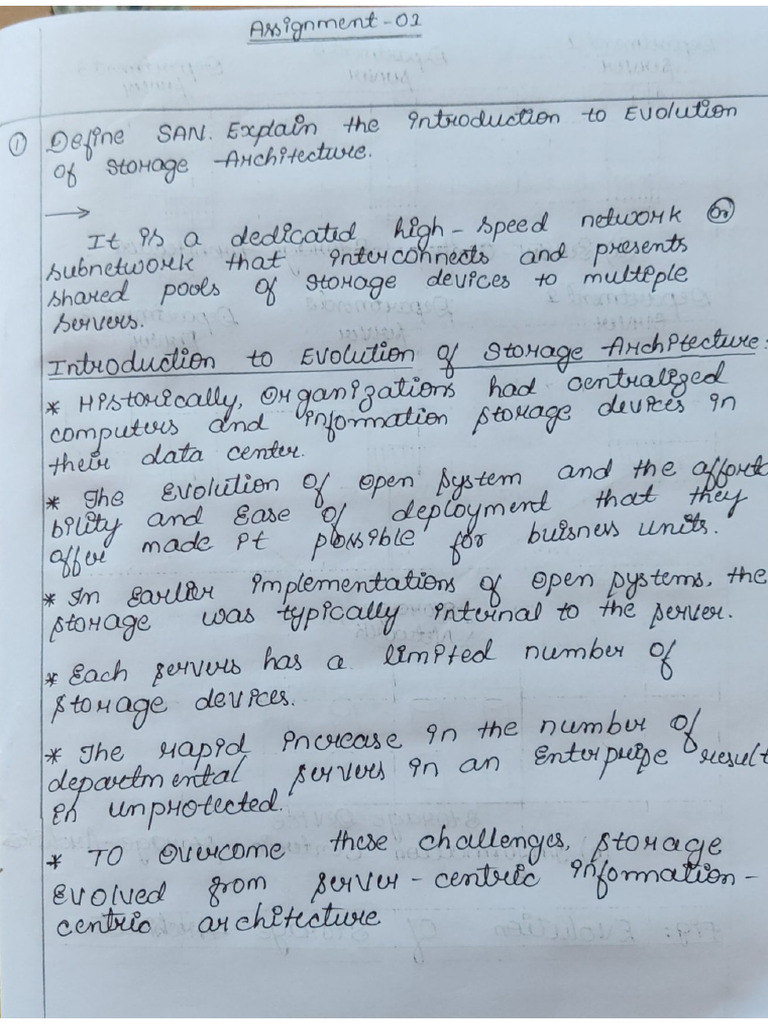 Assignment-01
① Define SAN. Explain the introduction to Evolution
of storage Architecture.
→
It is a dedicated high-speed network or
subnetwork that interconnects and presents
shared pools of storage devices to multiple
servers.
Introduction to Evolution of Storage Architecture:
* Historically, organizations had centralized
computers and information storage devices in
their data center.
* The Evolution of open system and the afforda
bility and Ease of deployment that they
offer made it possible for buisness units.
* In Earlier implementations of open systems, the
storage was typically internal to the server.
* Each servers has a limited number of
storage devices.
* The rapid increase in the number of
departmental servers in an Enterprise result
in unprotected.
* To overcome these challenges, storage
Evolved from server-centric information-
centric architecture